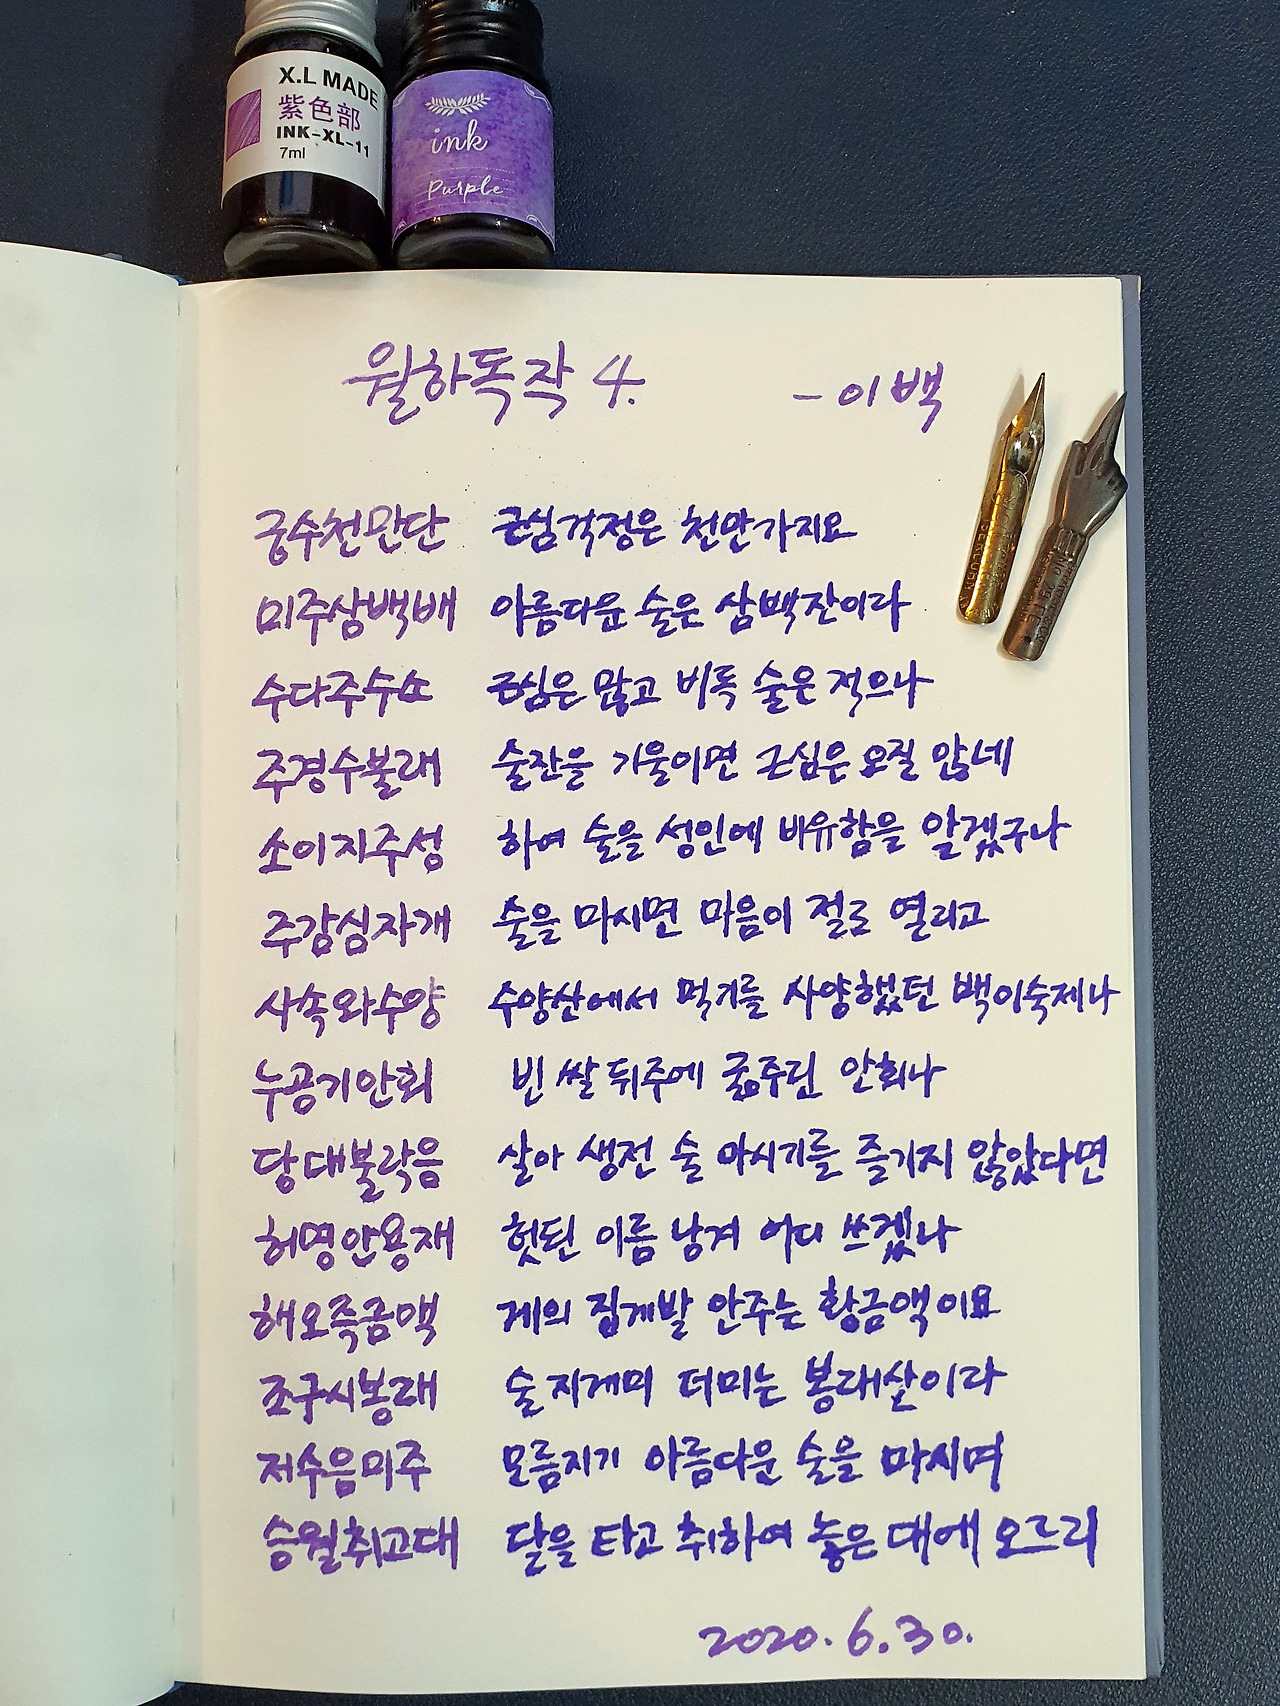 X.L MADE
紫色部
INK-XL-11
7ml
ink
Purple
월하독작 4. - 이백
궁수천만단 근심걱정은 천만가지요
미주삼백배 아름다운 술은 삼백잔이라
수다주수소 근심은 많고 비록 술은 적으나
주경수불래 술잔을 기울이면 근심은 오질 않네
소이지주성 하여 술을 성인에 비유함을 알겠구나
주감심자개 술을 마시면 마음이 절로 열리고
사속와수양 수양산에서 먹기를 사양했던 백이숙제나
누공기안회 빈 쌀 뒤주에 굶주린 안회나
당대불락음 살아 생전 술 마시기를 즐기지 않았다면
허명안용재 헛된 이름 남겨 어디 쓰겠나
해오즉금액 게의 집게발 안주는 황금액이요
조구시봉래 술지게미 더미는 봉래산이라
저수음미주 모름지기 아름다운 술을 마시며
승월취고대 달을 타고 취하여 높은 대에 오르리
2020. 6. 30.